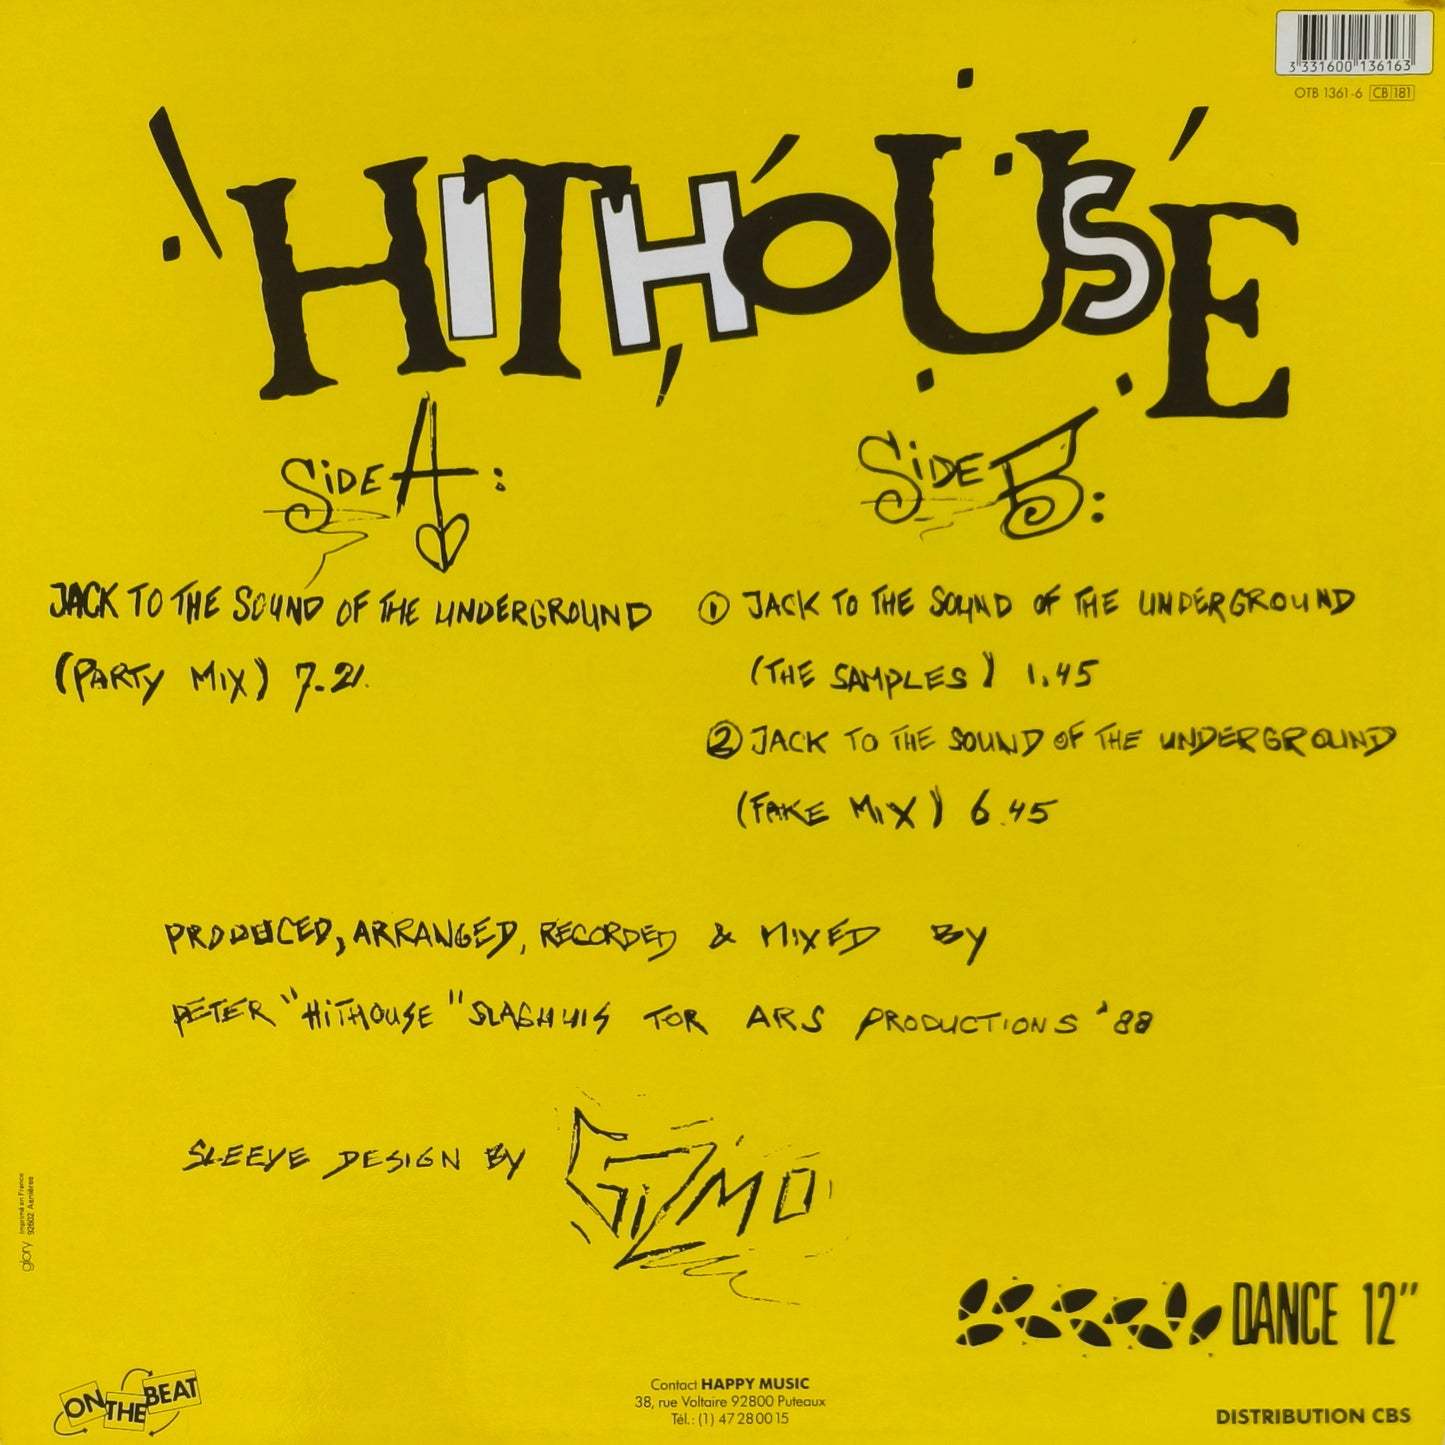 3 331600 136163
OTB 1361-6 CB 181
HITHOUSE
SIDE A:
JACK TO THE SOUND OF THE UNDERGROUND
(PARTY MIX) 7.21.
SIDE B:
① JACK TO THE SOUND OF THE UNDERGROUND
(THE SAMPLES) 1.45
② JACK TO THE SOUND OF THE UNDERGROUND
(FAKE MIX) 6.45
PRODUCED, ARRANGED, RECORDED & MIXED BY
PETER "HITHOUSE" SLAGHUIS FOR ARS PRODUCTIONS '88
SLEEVE DESIGN BY GIZMO
glory Imprimé en France
92602 Asnières
DANCE 12"
ON THE BEAT
Contact HAPPY MUSIC
38, rue Voltaire 92800 Puteaux
Tél.: (1) 47 28 00 15
DISTRIBUTION CBS